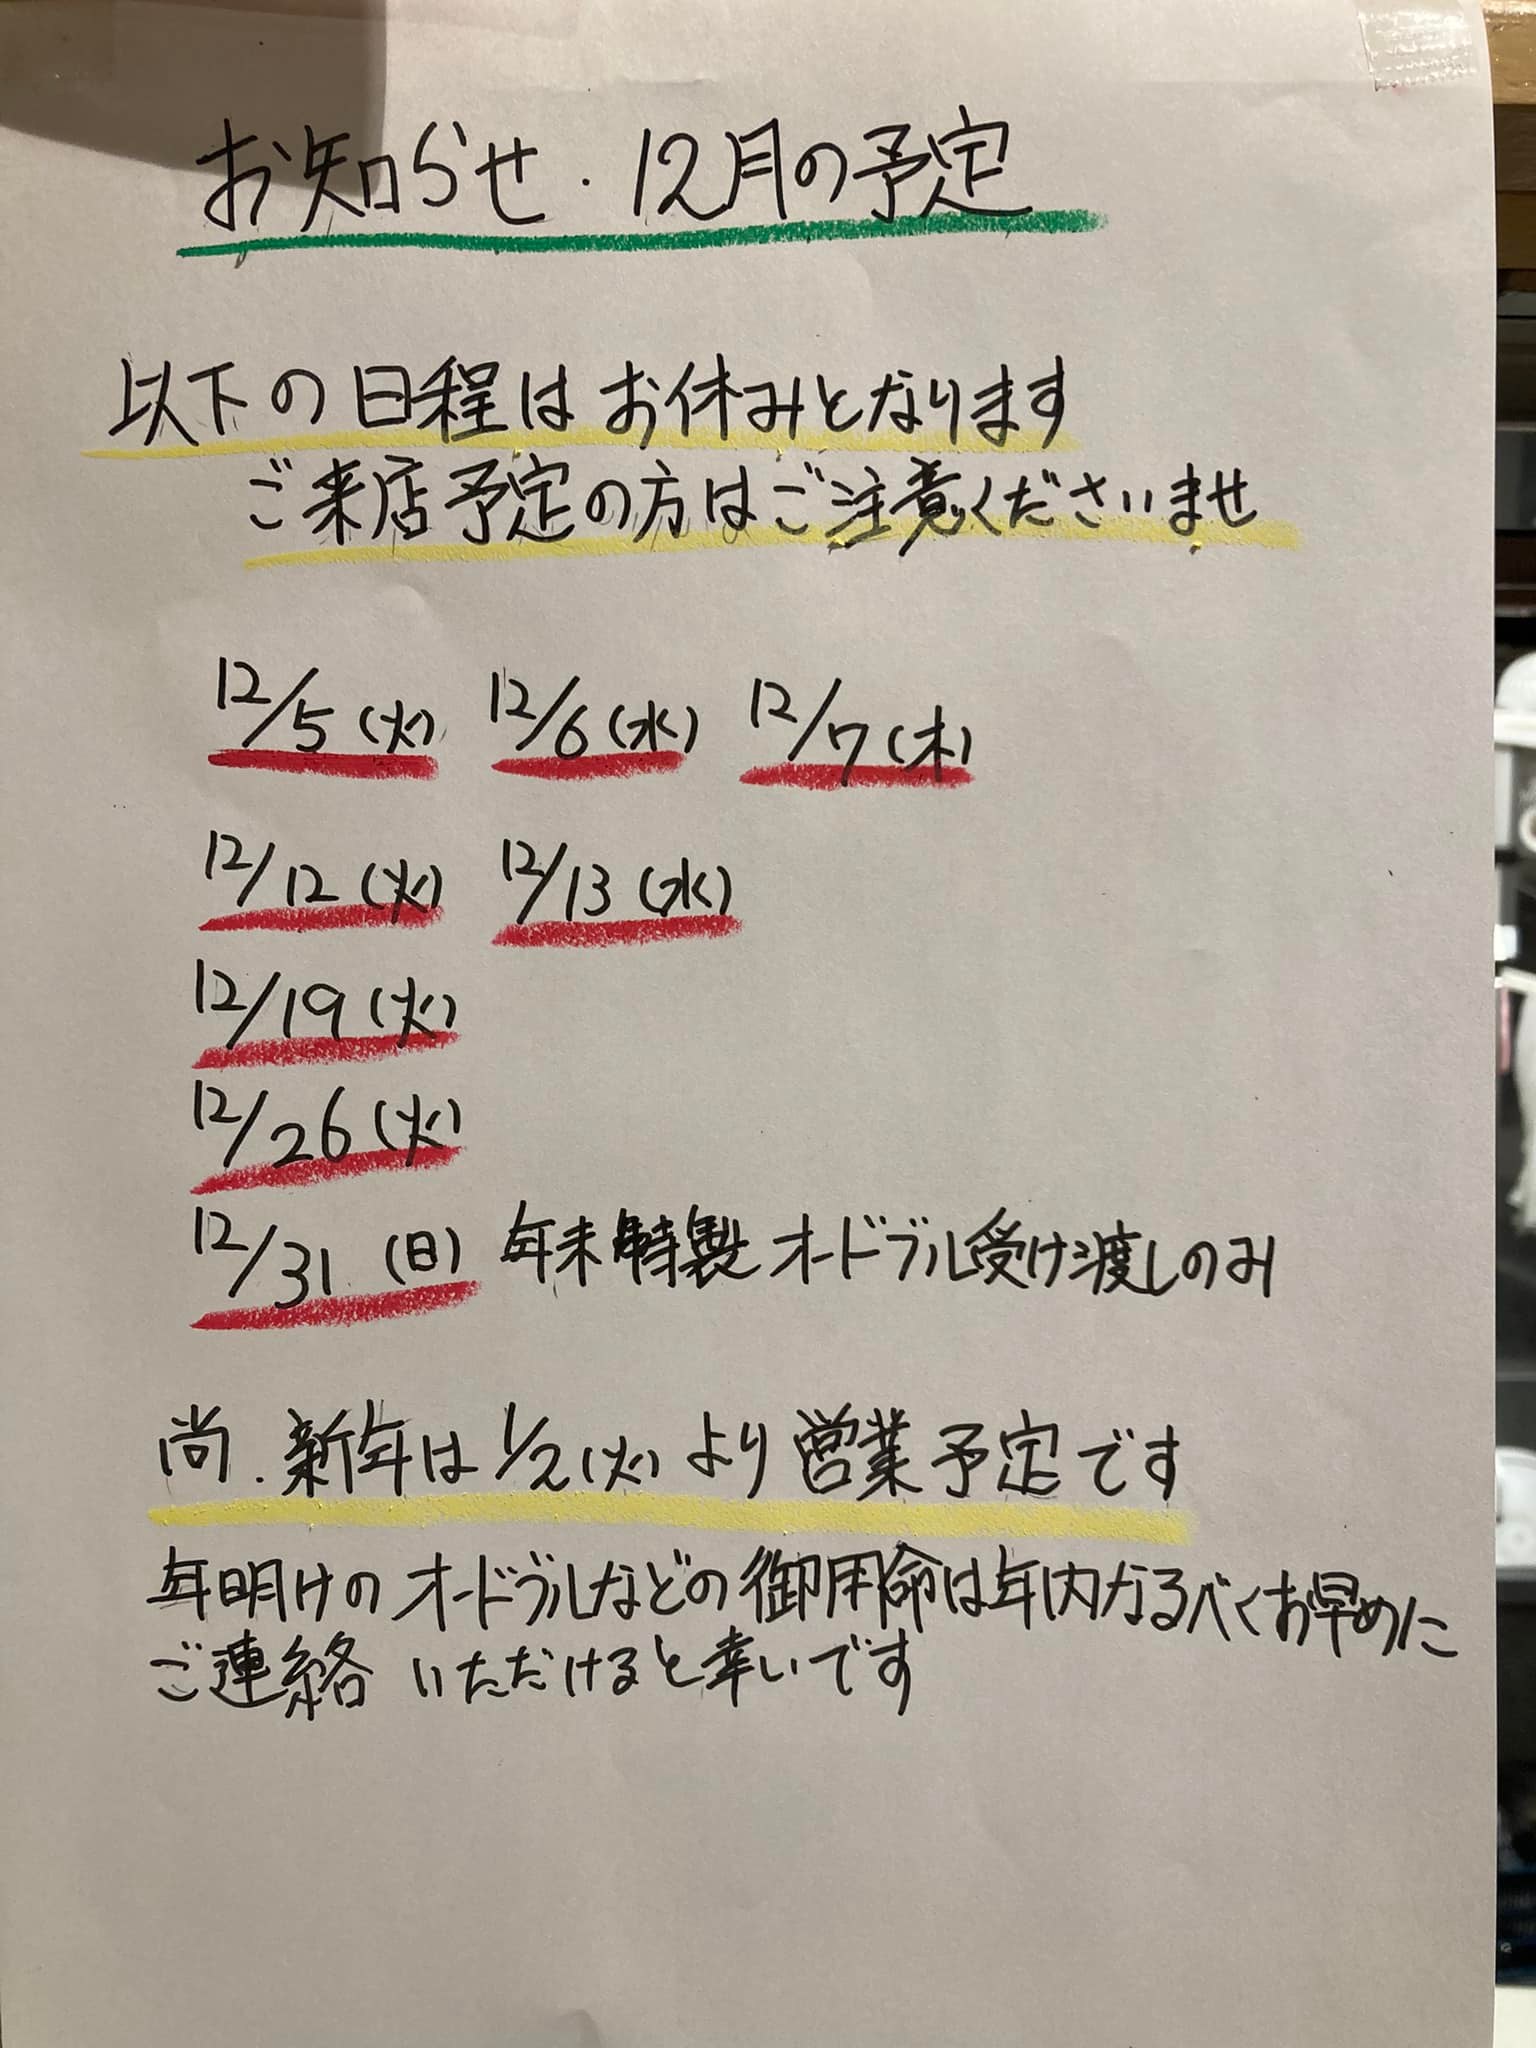 お知らせ・12月の予定
以下の日程はお休みとなります
ご来店予定の方はご注意くださいませ
12/5(火) 12/6(水) 12/7(木)
12/12(火) 12/13(水)
12/19(火)
12/26(火)
12/31(日) 年末特製オードブル受け渡しのみ
尚、新年は1/2(火)より営業予定です
年明けのオードブルなどの御用命は年内なるべくお早めに
ご連絡いただけると幸いです